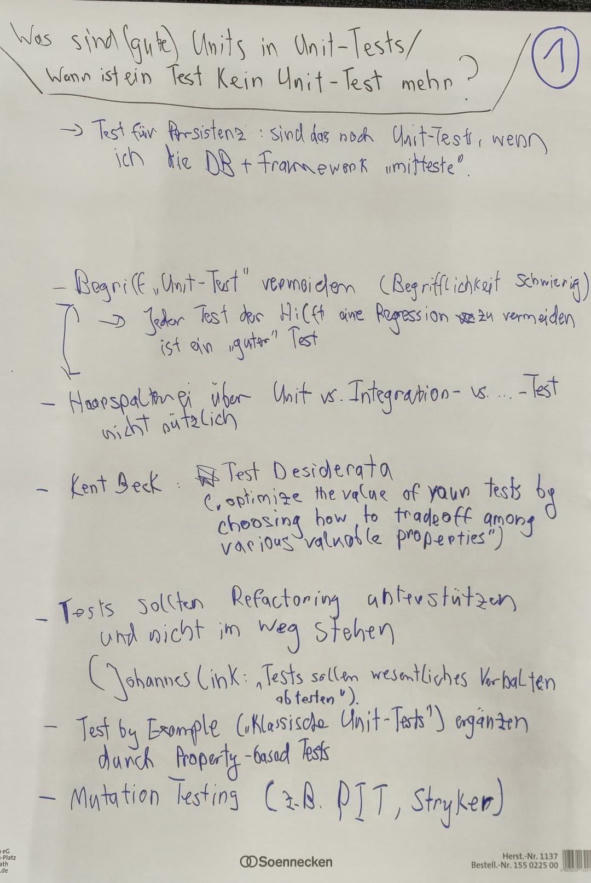 Was sind (gute) Units in Unit-Tests/
Wann ist ein Test kein Unit-Test mehr?
1
-> Test für Persistenz: sind das noch Unit-Tests, wenn
ich die DB + Framework "mitteste".
- Begriff "Unit-Test" vermeiden (Begrifflichkeit schwierig)
-> Jeder Test der Hilft eine Regression zu vermeiden
ist ein "guter" Test
- Haarspalterei über Unit vs. Integration- vs. ... -Test
nicht nützlich
- Kent Beck: Test Desiderata
("optimize the value of your tests by
choosing how to tradeoff among
various valuable properties")
- Tests sollten Refactoring unterstützen
und nicht im Weg stehen
(Johannes Link: "Tests sollen wesentliches Verhalten
abtesten").
- Test by Example ("Klassische Unit-Tests") ergänzen
durch Property-based Tests
- Mutation Testing (z.B. PIT, Stryker)
eG
-Platz
ath
.de
Soennecken
Herst.-Nr. 1137
Bestell.-Nr. 155 0225 00